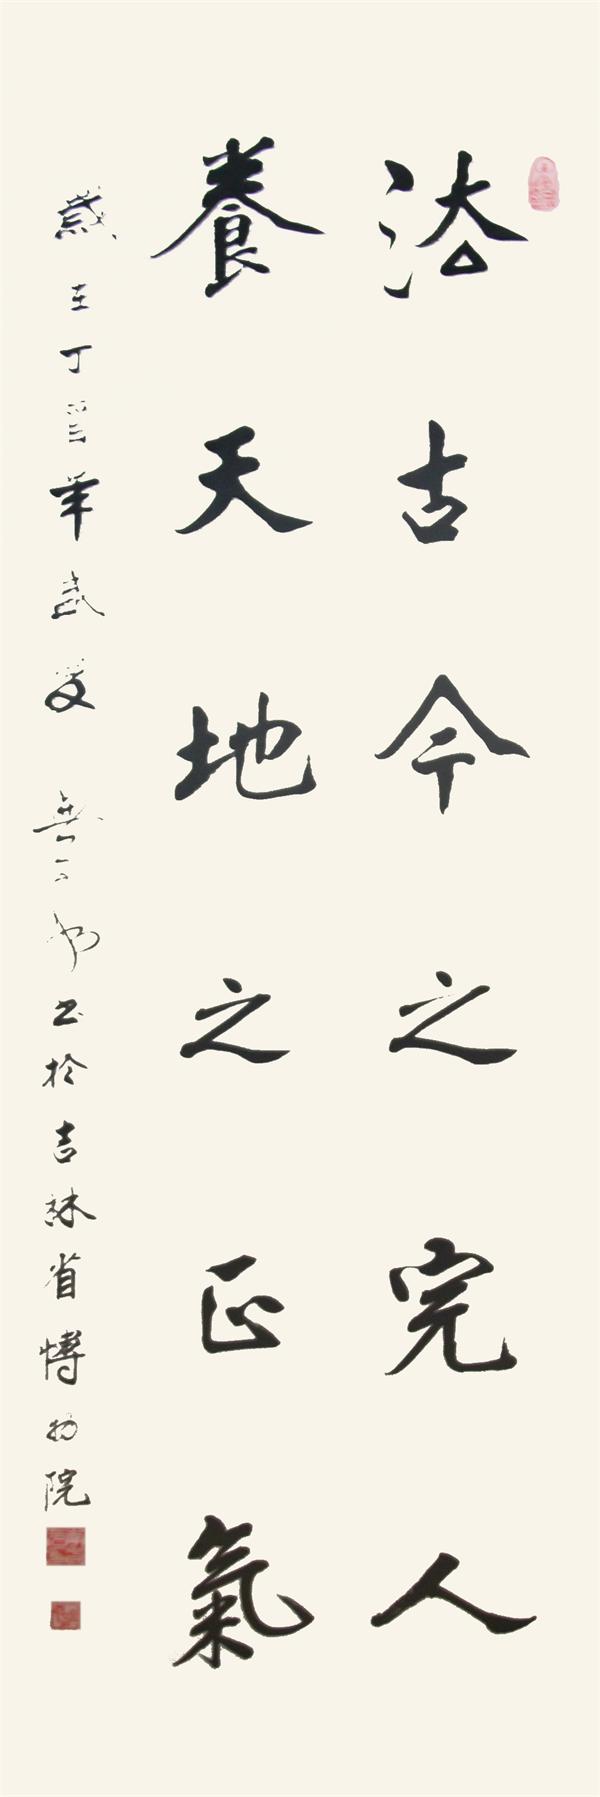 法古今之完人
養天地之正氣
歲在丁酉年 書於吉林省博物院